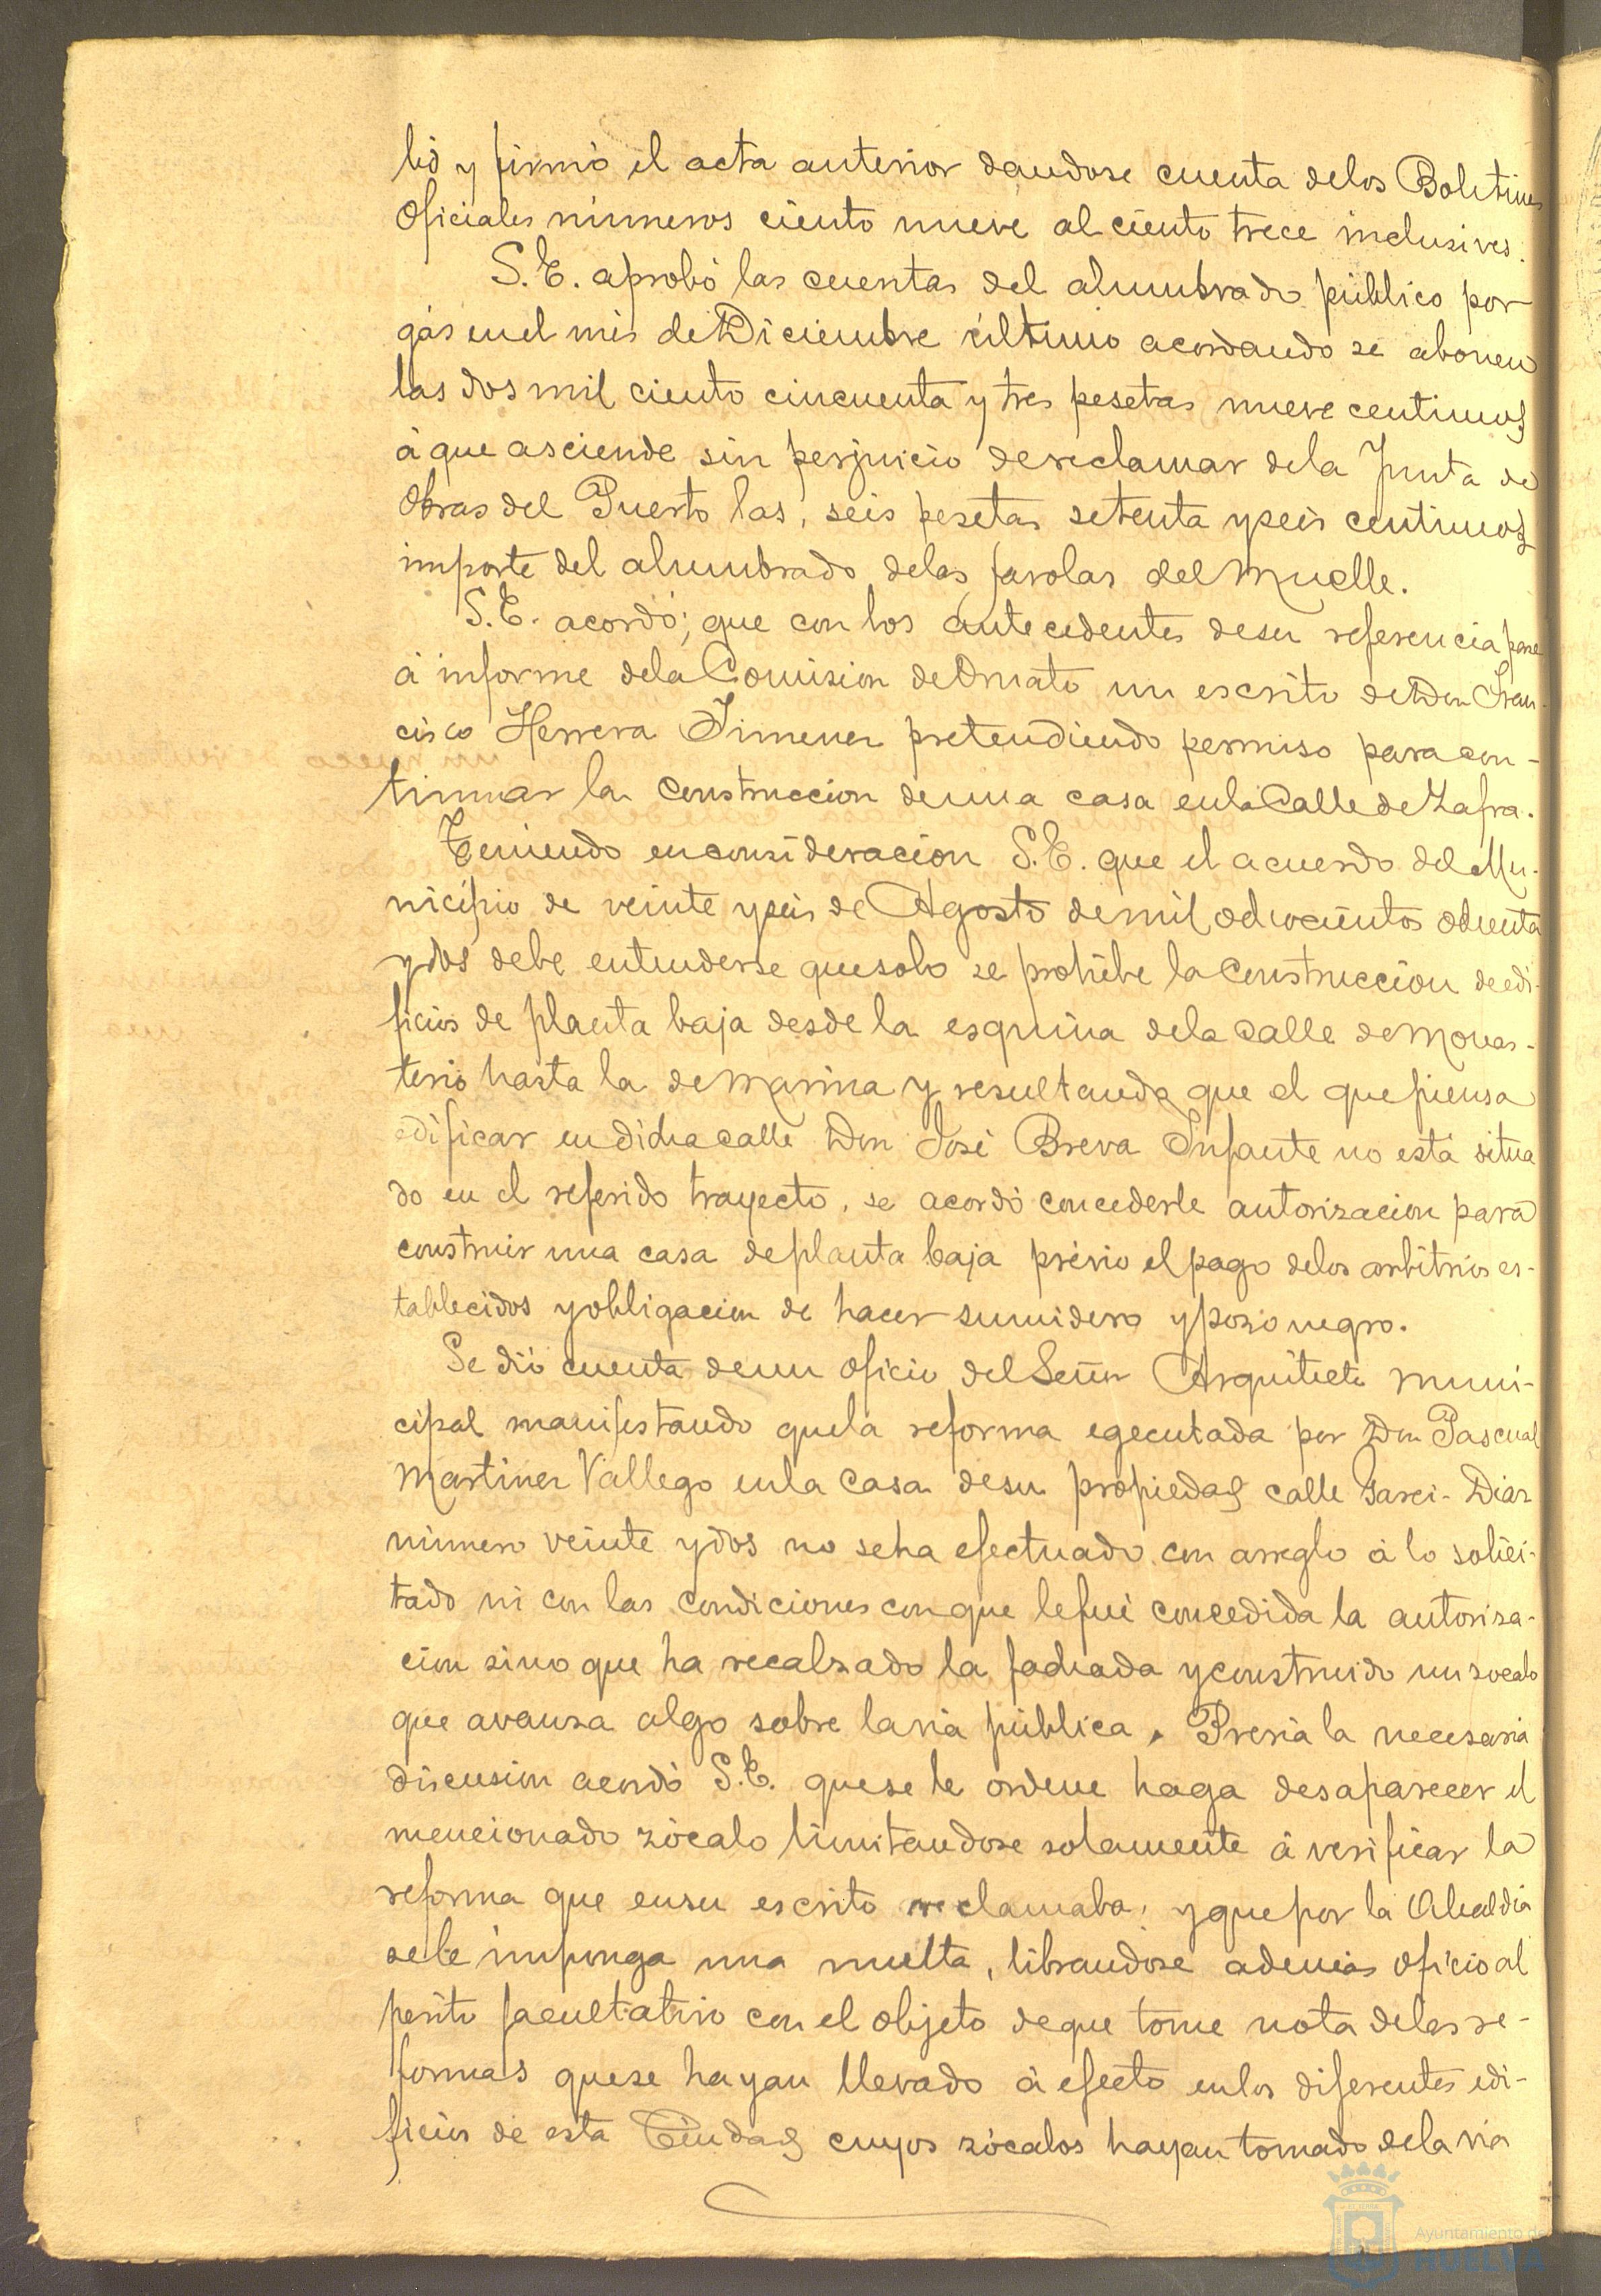 bó y firmó el acta anterior dandose cuenta delos Boletines
Oficiales números ciento nueve al ciento trece inclusives.
S.E. aprobó las cuentas del alumbrado público por
gás en el mes de Diciembre último acordando se abonen
las dos mil ciento cincuenta y tres pesetas nueve centimos
á que asciende sin perjuicio de reclamar dela Junta de
Obras del Puerto las, seis pesetas setenta y seis centimos
importe del alumbrado delas farolas del Muelle.
S.E. acordó; que con los antecedentes desu referencia pase
á informe dela Comision de Ornato un escrito de Don Fran-
cisco Herrera Jimenez pretendiendo permiso para con-
tinuar la construccion de una casa en la Calle de Zafra.
Teniendo en consideracion S.E. que el acuerdo del Mu-
nicipio de veinte y seis de Agosto de mil ochocientos ochenta
y dos debe entenderse que solo se prohibe la construccion de edi-
ficios de planta baja desde la esquina dela calle de Monas-
terio hasta la de Marina y resultando que el que piensa
edificar en dicha calle Don José Breva Infante no está situa
do en el referido trayecto, se acordó concederle autorizacion para
construir una casa de planta baja prévio el pago delos arbitrios es-
tablecidos y obligacion de hacer sumidero y pozo negro.
Se dió cuenta de un oficio del Señor Arquitecto muni-
cipal manifestando que la reforma egecutada por Don Pascual
Martinez Vallego en la Casa desu propiedad calle Garci-Diaz
número veinte y dos no se ha efectuado con arreglo á lo solici-
tado ni con las condiciones con que le fué concedida la autoriza-
cion sino que ha recalzado la fachada y construido un zocalo
que avanza algo sobre la via pública. Prévia la necesaria
discusion acordó S.E. que se le ordene haga desaparecer el
mencionado zócalo limitandose solamente á verificar la
reforma que en su escrito reclamaba; y que por la Alcaldia
se le imponga una multa, librandose además oficio al
perito facultativo con el objeto de que tome nota delas re-
formas que se hayan llevado á efecto en los diferentes edi-
ficios de esta Ciudad cuyos zócalos hayan tomado dela via
Ayuntamiento de
HUELVA